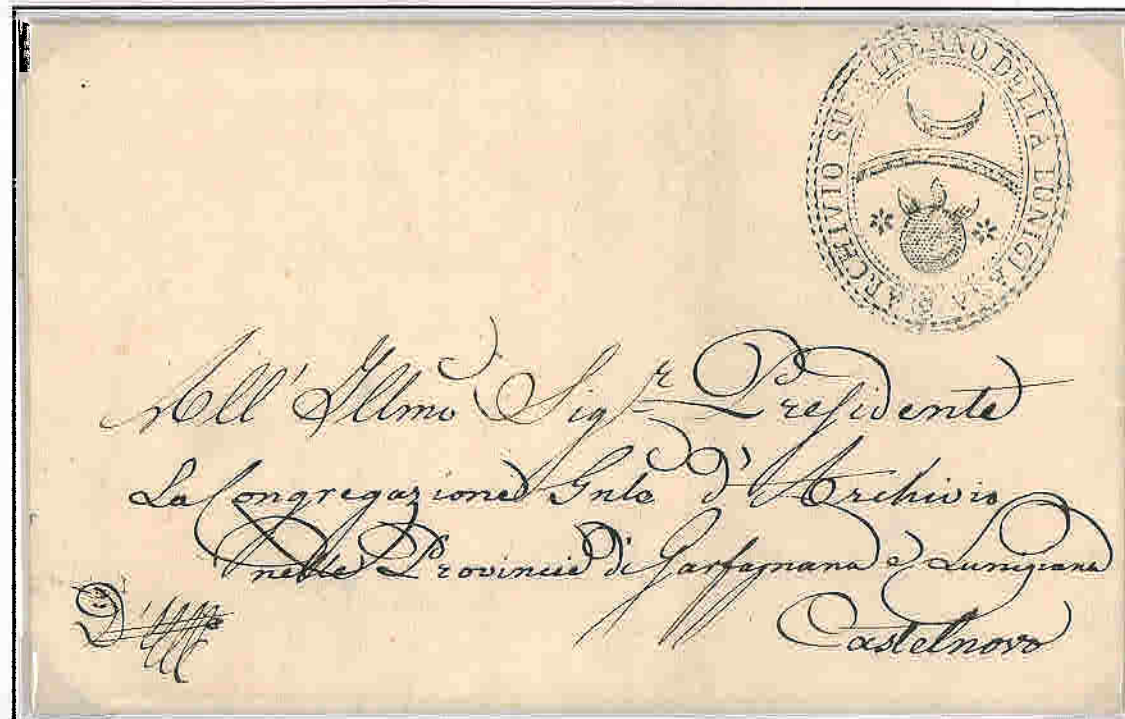 ARCHIVIO SUBALTERNO DELLA LUNIGIANA
All' Illmo Sigr Presidente
La Congregazione Gnle d'Archivio
nelle Provincie di Garfagnana e Lunigiana
Castelnovo
D'Uffo